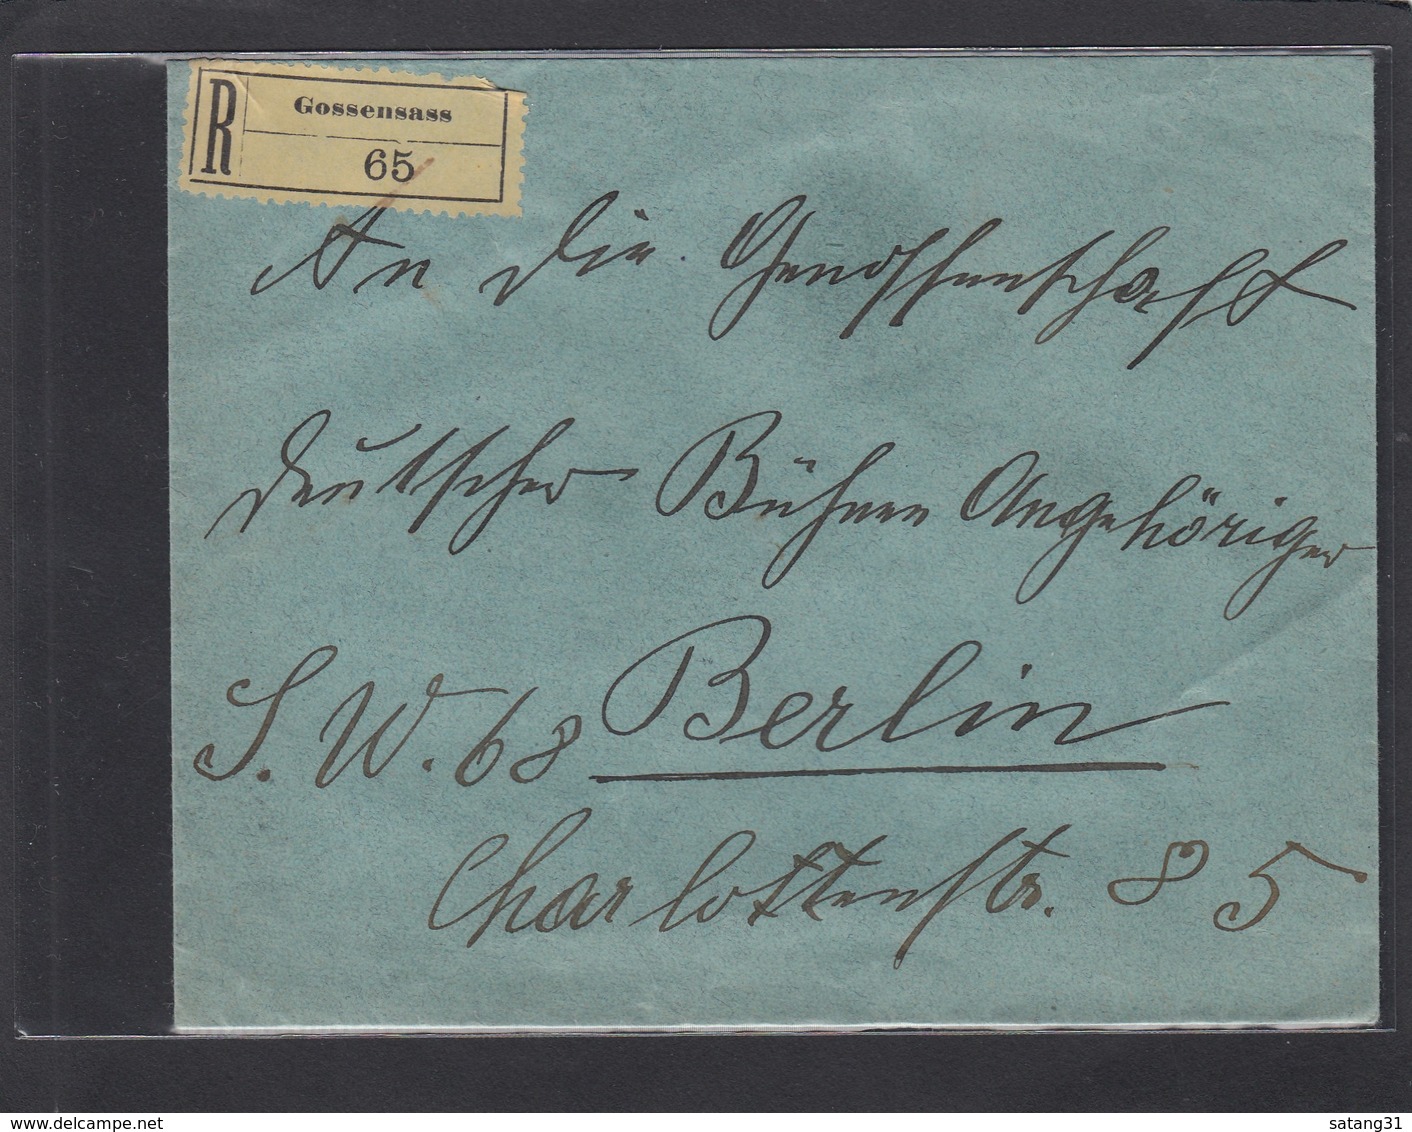 R
Gossensass
65
An die Genossenschaft
deutscher Bühnen Angehöriger
S. W. 68 Berlin
Charlottenstr. 85
www.delcampe.net
satang31